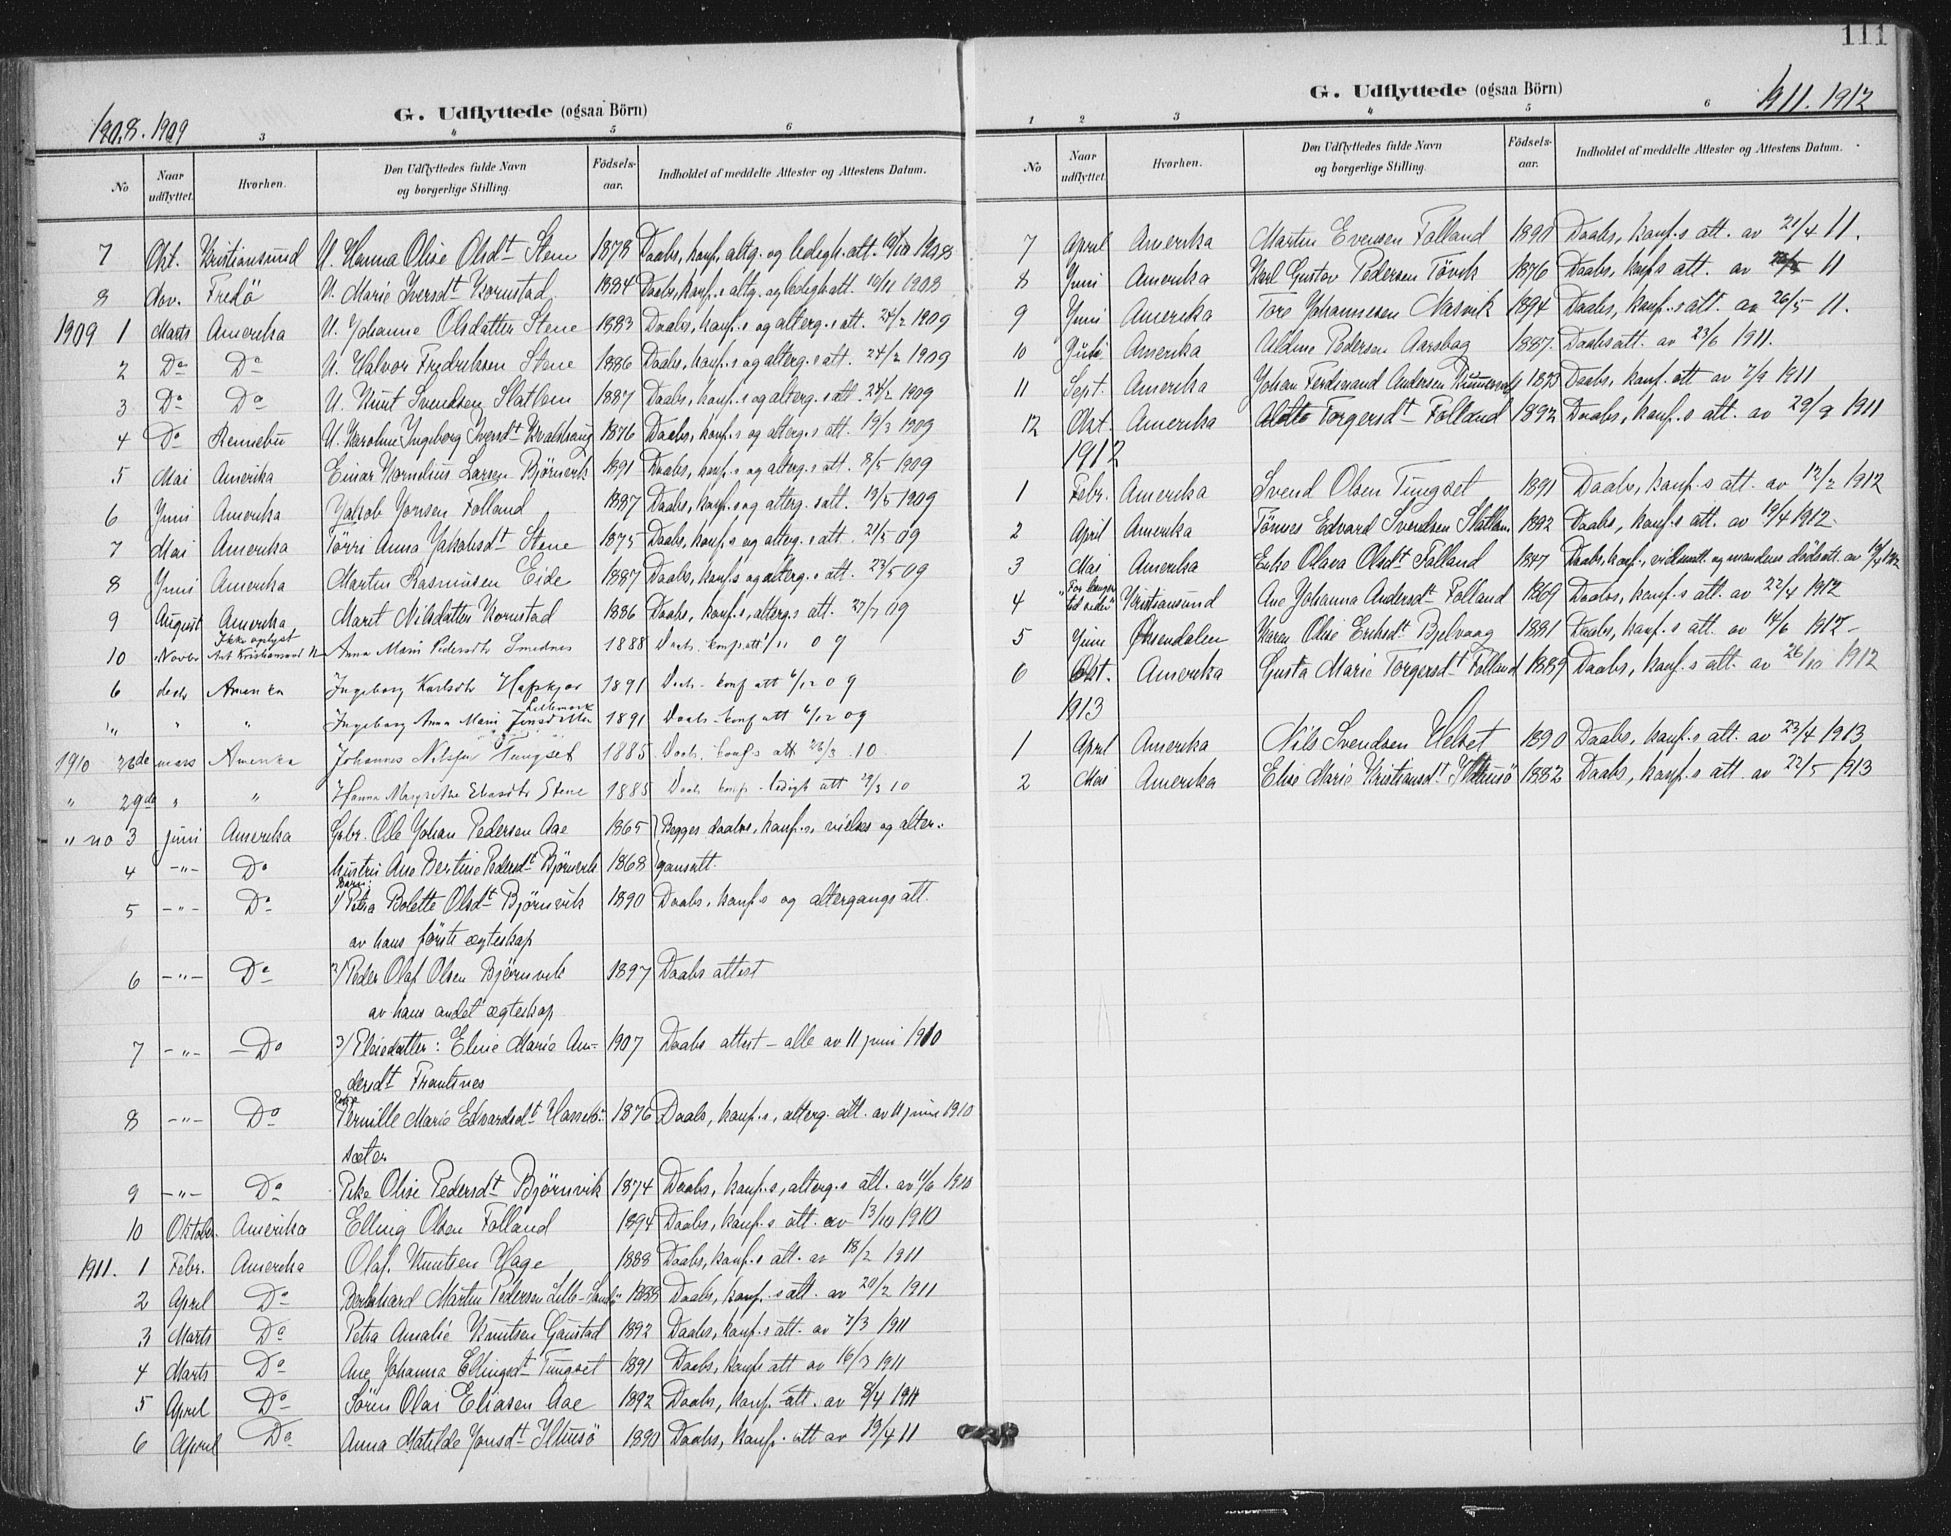 111
1908. 1909
G. Udflyttede (ogsaa Börn)
3 4 5 6
No Naar udflyttet. Hvorhen. Den Udflyttedes fulde Navn og borgerlige Stilling. Födsels-aar. Indholdet af meddelte Attester og Attestens Datum.
7 Okt. Kristiansund U. Hanna Olise Olsdt Stene 1878 Daabs, konf. altg. og ledigh. att. 10/10 1908
8 Nov. Fredö U. Marie Iversdt Kornstad 1884 Daabs, konf.s altg. og ledigh att. 10/11 1908
1909 1 Marts Amerika U. Johanne Olsdatter Stene 1883 Daabs, konf.s og alterg.s att. 24/2 1909
2 Do Do U. Halvor Fredriksen Stene 1886 Daabs, konf.s og alterg.s att. 24/2 1909
3 Do Do U. Knut Svendsen Slatlem 1887 Daabs, konf.s og alterg.s att. 24/2 1909
4 Do Rennebu U. Karoline Ingeborg Iversdt 1876 Daabs, konf.s og alterg.s att. 19/3 1909
5 Mai Amerika Einar Kornelius Larsen Björnvik 1891 Daabs, konf.s og alterg.s att. 8/5 1909
6 Juni Amerika Jakob Jonsen Folland 1887 Daabs, konf.s og alterg.s att. 19/5 1909
7 Mai Amerika Törri Anna Jakobsdt Stene 1875 Daabs, konf.s og alterg.s att. 21/5 09
8 Juni Amerika Martin Rasmusen Eide 1887 Daabs, konf.s og alterg.s att. 22/5 09
9 August Amerika Marit Nilsdatter Kornstad 1886 Daabs, konf.s, alterg.s att. 27/7 09
Ikke oplyst
10 Novbr Kristiansund N Anna Marie Pedersdtr Smednes 1888 Daabs. konf att 1/11 09
6 decbr Amerika Ingeborg Karlsdtr Hafskjær 1891 Daabs - konf att 6/12 09
" " " Ingeborg Anna Marie Jonsdatter 1891 Daabs - konf att 6/12 09
1910 26de mars Amerika Johannes Nilssen Tungset 1885 Daabs. konfs att 26/3 10
" 29de " " Hanna Margrethe Eliasdtr Stene 1885 Daabs konfs - ledigh att 29/3 10
" no 3 juni Amerika Gbr. Ole Johan Pedersen Aae 1865 Begges daabs, konf.s, vielses og alter-
4 -"- Do hustru Ane Bertine Pedersdt Björnvik 1868 gansatt.
Barn:
5 -"- Do 1/ Petra Bolette Olsdt Björnvik 1890 Daabs, konf.s og altergangs att.
av hans förste ægteskap
6 -"- Do 2/ Peder Olaf Olsen Björnvik 1897 Daabs attest
av hans andet ægteskap
7 -"- Do 3/ Pleiedatter: Eline Marie An- 1907 Daabs attest - alle av 11 juni 1910
dersdt
8 -"- Do Pernille Marie Edvardsdt 1876 Daabs, konf.s, alterg. att. av 11 juni 1910
sæter
9 -"- Do Pike Olise Pedersdt Björnvik 1874 Daabs, konf.s, alterg.s att. av 11/6 1910
10 Oktober Amerika Elling Olsen Folland 1894 Daabs, konf.s att. av 13/10 1910
1911. 1 Febr. Amerika Olaf Knutsen Hage 1888 Daabs, konf.s att. av 18/2 1911
2 April Do Bernhard Martin Pedersen Lille-Sandö Daabs, konf.s att. av 20/2 1911
3 Marts Do Petra Amalie Knutsen Gaustad 1892 Daabs, konf.s att. av 7/3 1911
4 Marts Do Ane Johanna Ellingsdt Tungset 1891 Daabs, konfs att av 16/3 1911
5 April Do Sören Olai Eliasen Aae 1892 Daabs, konf. att. av 8/4 1911
6 April Do Anna Matilde Jonsdt 1890 Daabs, konf. att av 19/4 11
G. Udflyttede (ogsaa Börn)
1911. 1912
1 2 3 4 5 6
No Naar udflyttet. Hvorhen. Den Udflyttedes fulde Navn og borgerlige Stilling. Födsels-aar. Indholdet af meddelte Attester og Attestens Datum.
7 April Amerika Martin Evensen Folland 1890 Daabs, konf.s att. av 21/4 11.
8 Juni Amerika Karl Gustav Pedersen Tövik 1876 Daabs, konf.s att. av 11
9 Juni Amerika Tore Johannesen Nasvik 1894 Daabs, konf.s att. av 26/5 11.
10 Juli Amerika Aldine Pedersen Aarsbog 1887. Daabsatt. av 23/6 1911.
11 Sept. Amerika Johan Ferdinand Andersen 1893 Daabs, konf. att av 7/9 1911
12 Okt. Amerika Torgersdt Folland 1892 Daabs, konf.s att. av 29/9 1911
1912
1 Febr. Amerika Svend Olsen Tungset 1891 Daabs, konf.s att. av 12/2 1912
2 April Amerika Tönnes Edvard Svendsen Slatlem 1892 Daabs, konf.s att. av 19/4 1912.
3 Mai Amerika Enke Olava Olsdt Folland 1847 Daabs, konf.s, vielsesatt. og mandens dödsatt. av 19/4 1912
4 "For længere tid siden" Kristiansund Ane Johanna Andersdt Folland 1869 Daabs, konf.s att. av 22/4 1912
5 Juni Öksendalen Karen Olise Eriksdt Bjelvaag 1881 Daabs, konf.s att. av 14/6 1912-
6 Okt. Amerika Gusta Marie Torgersdt Folland 1889 Daabs, konf.s att. av 26/10 1912
1913
1 April Amerika Nils Svendsen Helset 1890 Daabs, konf.s att. av 23/4 1913
2 Mai Amerika Elise Marie Kristiansdt 1882 Daabs, konf.s att. av 22/5 1913